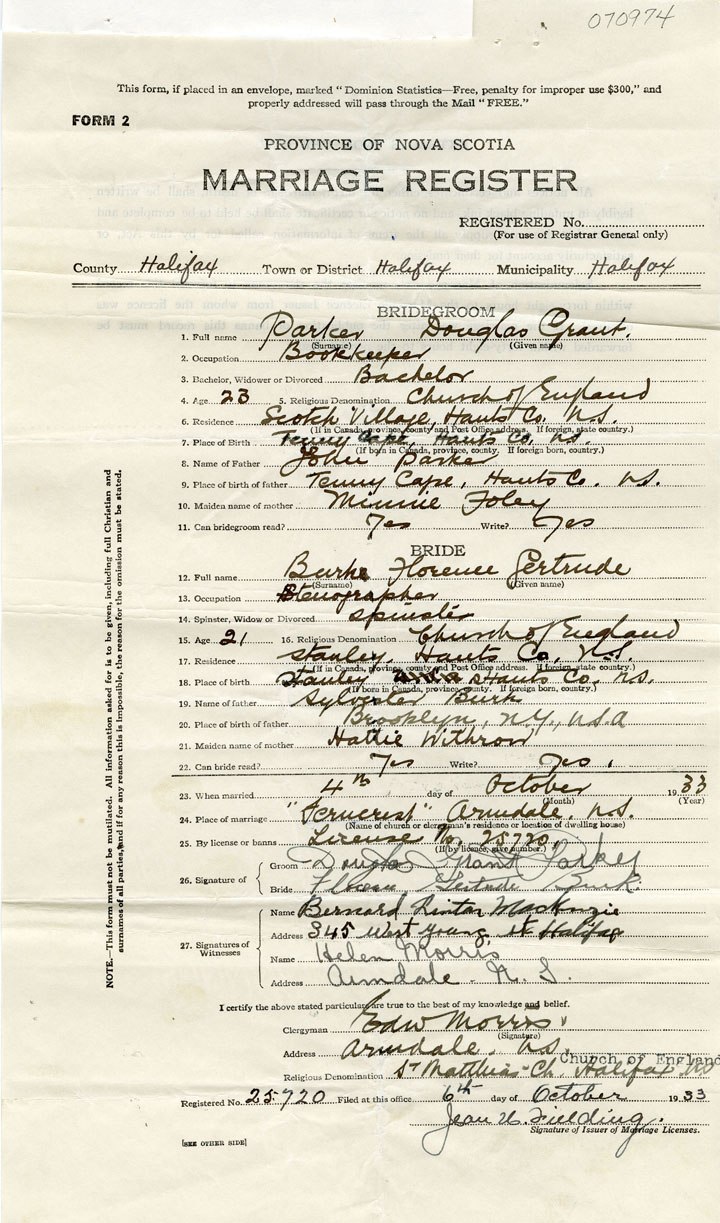 070974
This form, if placed in an envelope, marked "Dominion Statistics—Free, penalty for improper use $300," and
properly addressed will pass through the Mail "FREE."
FORM 2
PROVINCE OF NOVA SCOTIA
MARRIAGE REGISTER
REGISTERED No.
(For use of Registrar General only)
County Halifax Town or District Halifax Municipality Halifax
BRIDEGROOM
1. Full name Parker Douglas Grant.
(Surname) (Given name)
2. Occupation Bookkeeper
3. Bachelor, Widower or Divorced Bachelor
4. Age 23 5. Religious Denomination Church of England
6. Residence Scotch Village, Hants Co, N.S.
(If in Canada, province, county and Post Office address. If foreign, state country.)
7. Place of Birth Tenny Cape, Hants Co, N.S.
(If born in Canada, province, county. If foreign born, country.)
8. Name of Father John Parker
9. Place of birth of father Tenny Cape, Hants Co. N.S.
10. Maiden name of mother Minnie Foley
11. Can bridegroom read? Yes Write? Yes
BRIDE
12. Full name Burke Florence Gertrude
(Surname) (Given name)
13. Occupation Stenographer
14. Spinster, Widow or Divorced Spinster
15. Age 21 16. Religious Denomination Church of England
17. Residence Stanley, Hants Co, N.S.
(If in Canada, province, county and Post Office address. If foreign, state country.)
18. Place of birth Stanley Hants Co. N.S.
(If born in Canada, province, county. If foreign born, country.)
19. Name of father Sylvester Burk
20. Place of birth of father Brooklyn, N.Y., U.S.A
21. Maiden name of mother Hattie Withrow
22. Can bride read? Yes Write? Yes.
23. When married 4th day of October 1933
(Month) (Year)
24. Place of marriage "Ferncrest" Armdale, N.S.
(Name of church or clergyman's residence or location of dwelling house)
25. By license or banns License No. 25720.
(If by licence, give number.)
26. Signature of
Groom Douglas Grant Parker
Bride Florence Gertrude Burk.
27. Signatures of Witnesses
Name Bernard MacKenzie
Address 345 West Young St Halifax
Name Helen Morris
Address Armdale. N.S.
I certify the above stated particulars are true to the best of my knowledge and belief.
Clergyman Edw Morris
(Signature)
Address Armdale. N.S.
Church of England
Religious Denomination St Matthias Ch. Halifax NS
Registered No. 25720 Filed at this office 6th day of October 1933
Jean U. Fielding.
Signature of Issuer of Marriage Licenses.
[SEE OTHER SIDE]
NOTE.—This form must not be mutilated. All information asked for is to be given, including full Christian and
surnames of all parties, and if for any reason this is impossible, the reason for the omission must be stated.